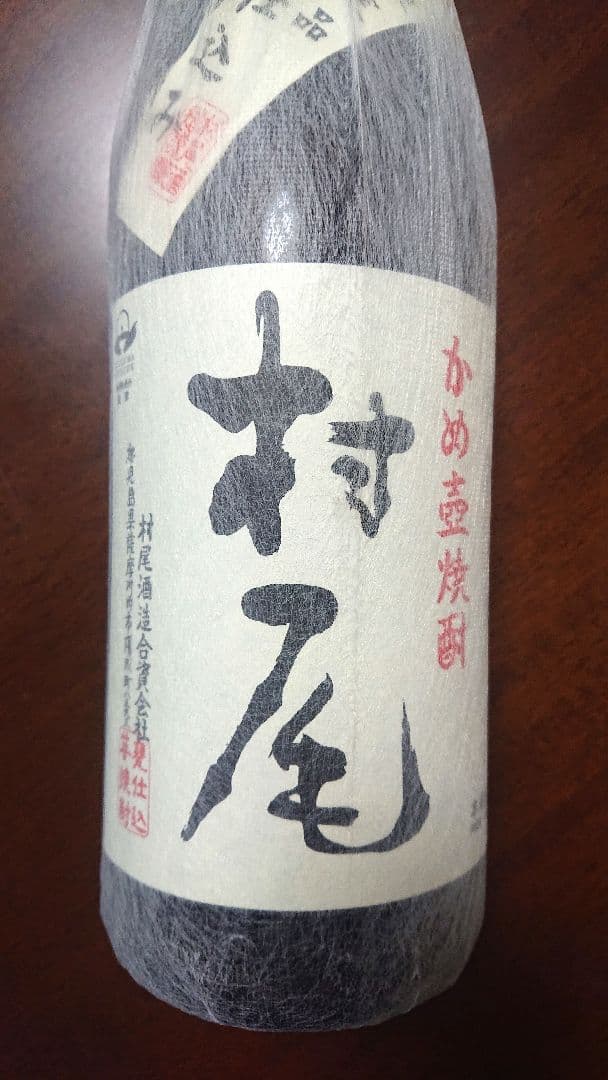 込み
かめ壺焼酎
村尾
村尾酒造合資会社
鹿児島県薩摩川内市陽成町
甕仕込
芋焼酎